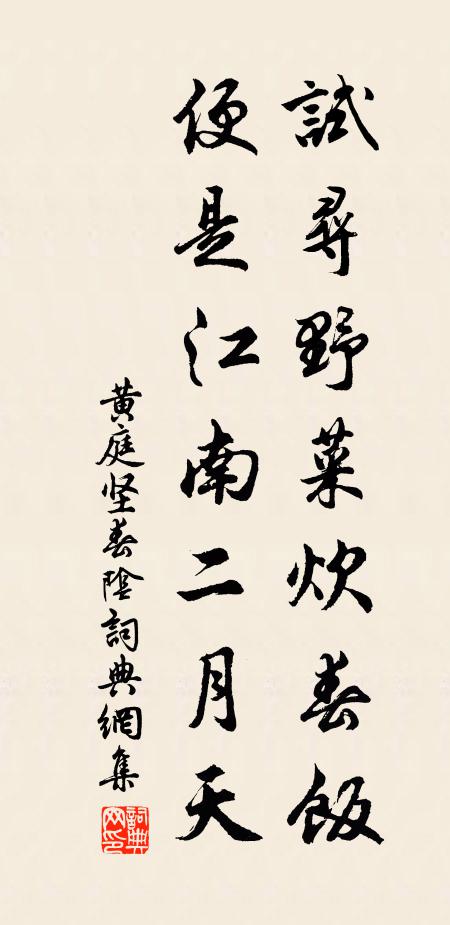 試尋野菜炊春飯
便是江南二月天
黄庭坚春陰詞典網集
詞典网印